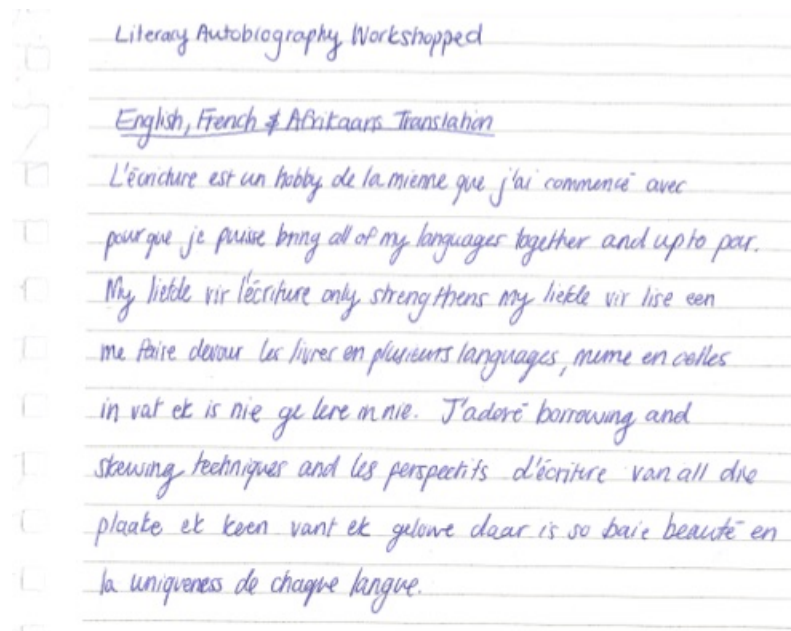 Literary Autobiography Workshopped
English, French & Afrikaans Translation
L'écriture est un hobby de la mienne que j'ai commencé avec
pour que je puisse bring all of my languages together and up to par.
My liefde vir l'écriture only strengthens my liefde vir lise een
me faire devour les livres en plusieurs languages, meme en celles
in vat ek is nie ge lere in nie. J'adore borrowing and
skewing techniques and les perspectifs d'écriture van all die
plaake ek keen vant ek gelowe daar is so baie beauté en
la uniqueness de chaque langue.